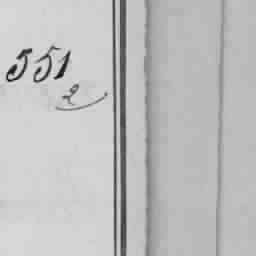 551
2